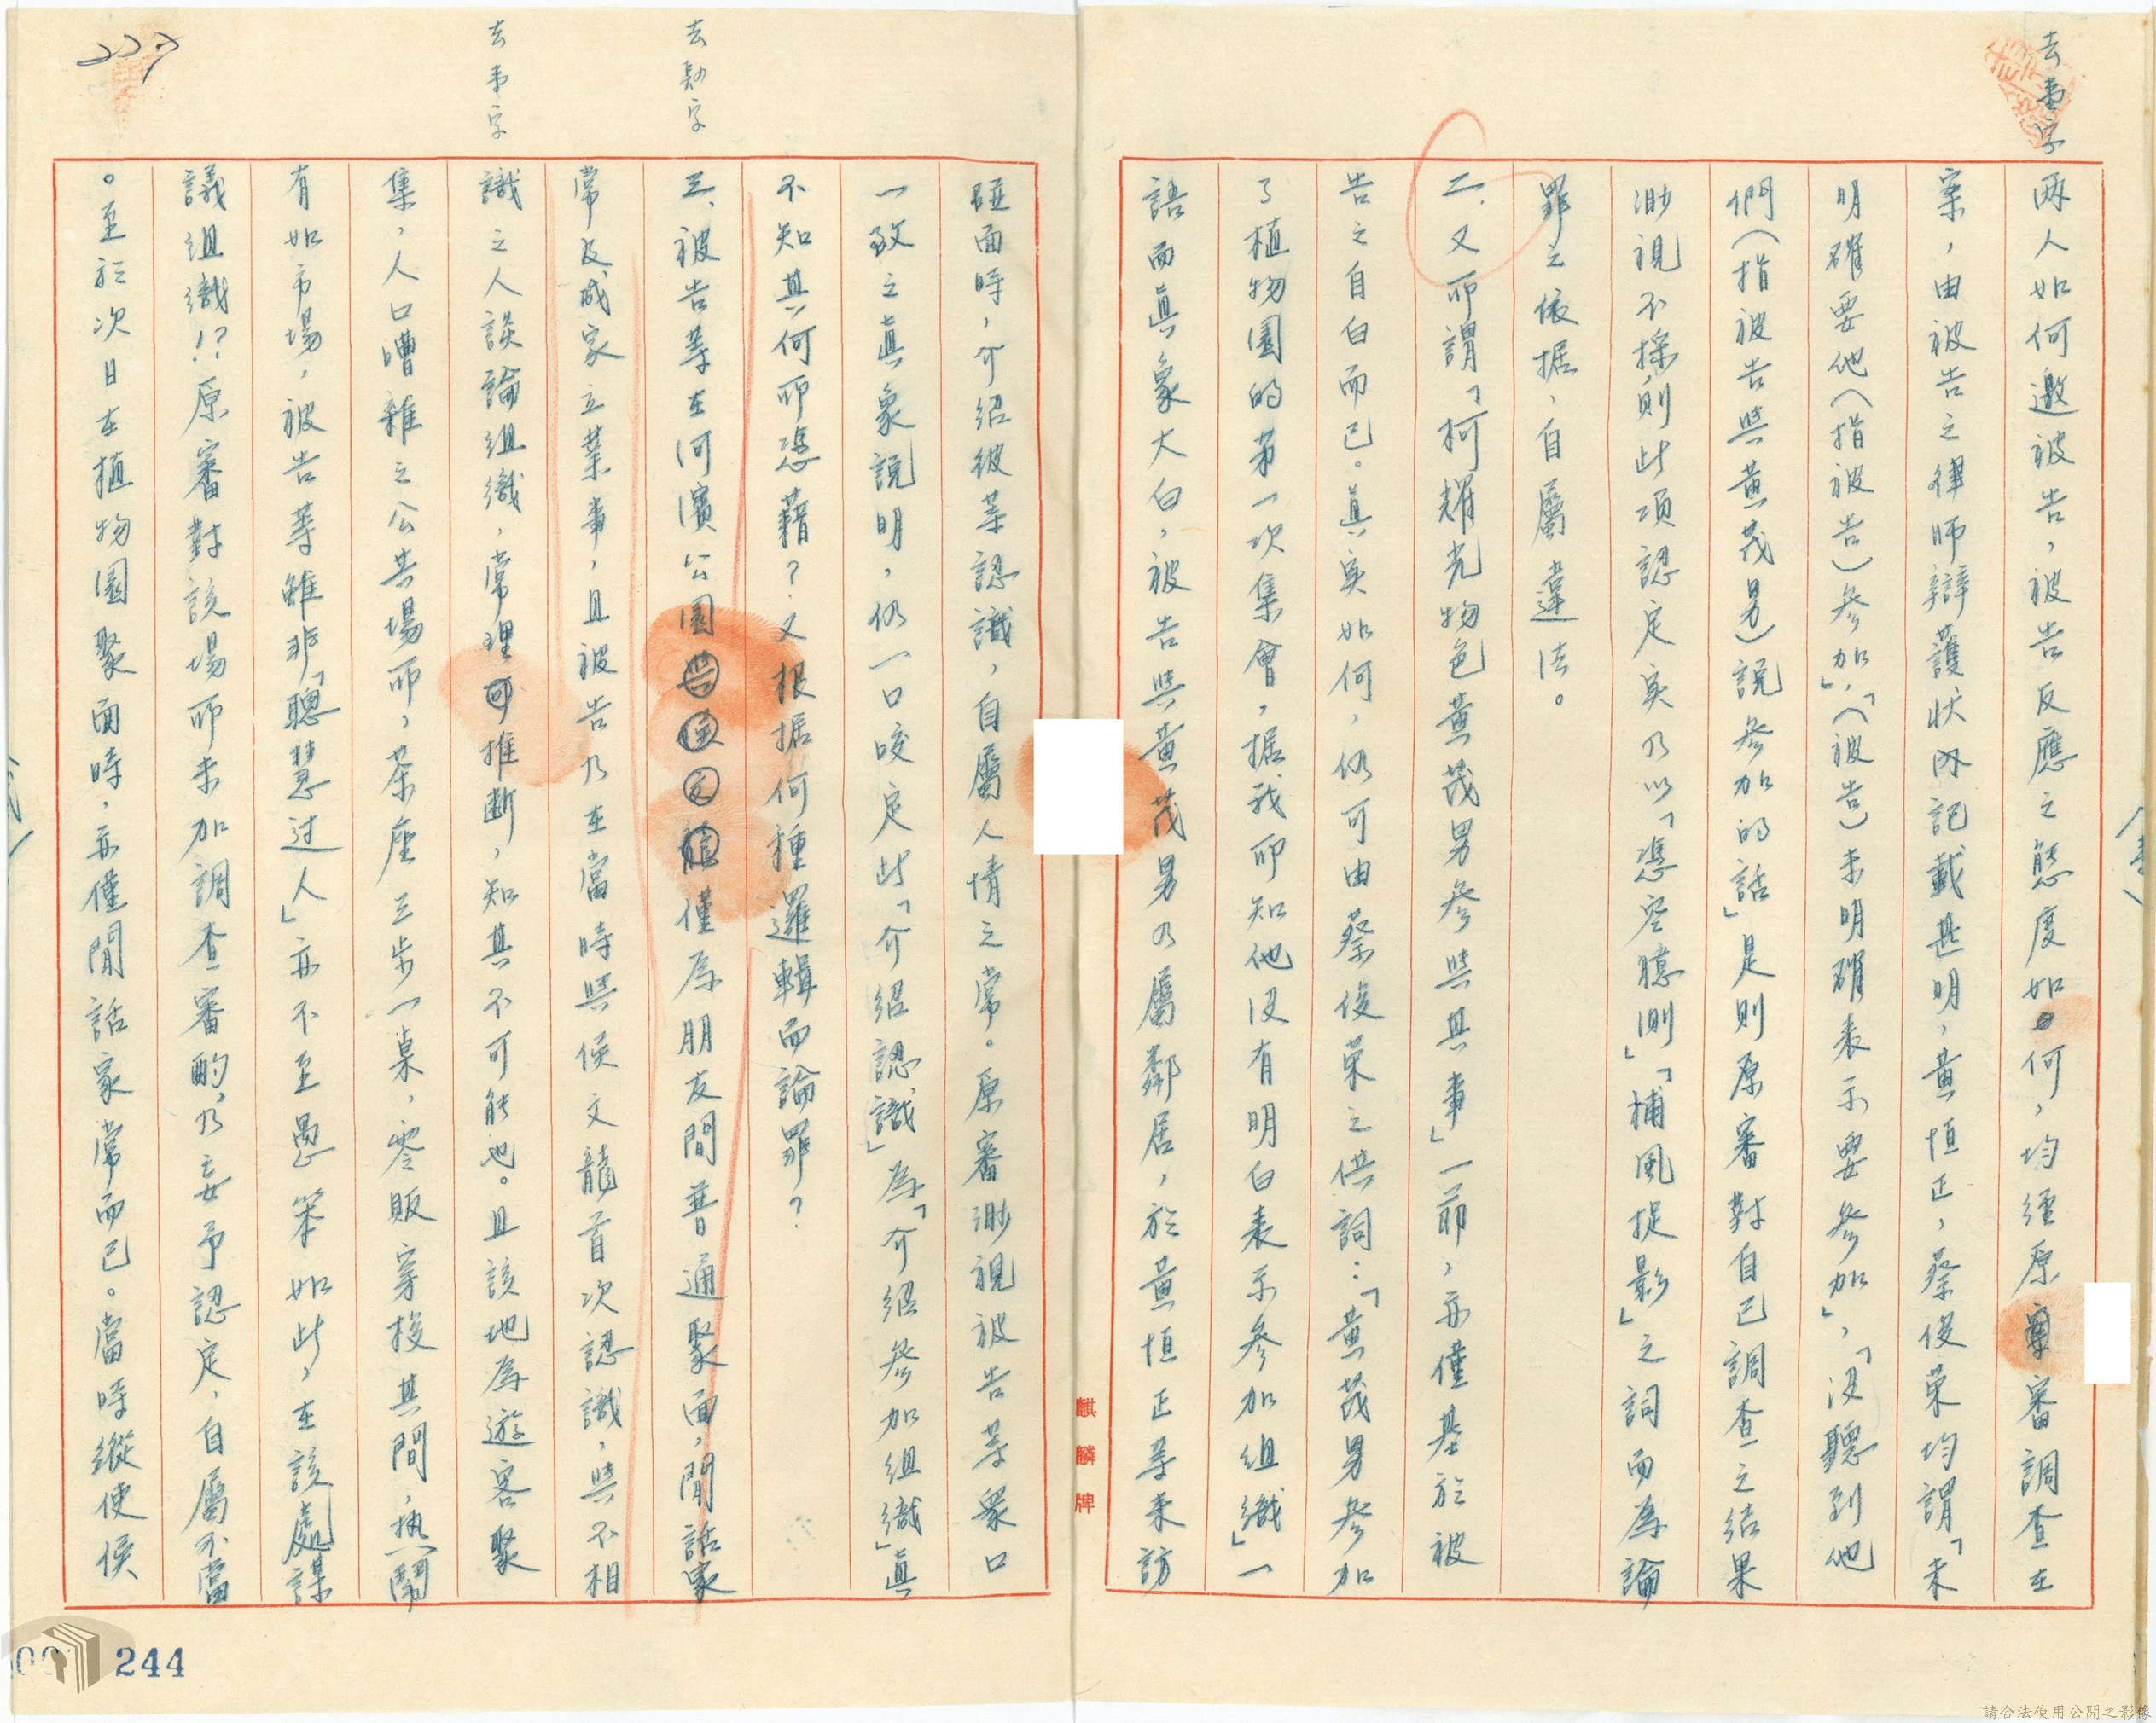 去畫字
兩人如何邀被告,被告反應之態度如何,均經原審調查在
案,由被告之律師辯護狀內記載甚明,黃恒正,蔡俊荣均謂「未
明確要他(指被告)參加」,「(被告)未明確表示要參加」,「沒聽到他
們(指被告與黃茂男)説參加的話」是則原審對自己調查之結果
渺視不採,則此項認定实乃以「憑空臆測」「捕風捉影」之詞而為論
罪之依据,自屬違法。
二、又所謂「柯耀光物色黃茂男參與其事」一節,亦僅基於被
告之自白而已。真实如何,仍可由蔡俊荣之供詞:「黃茂男參加
了植物園的第一次集會,据我所知他沒有明白表示參加組織」一
語而真象大白,被告與黃茂男乃屬鄰居,於黃恒正等來訪
麒麟牌
去勢字
去事字
碰面時,介紹彼等認識,自屬人情之常。原審渺視被告等眾口
一致之真象說明,仍一口咬定此「介紹認識」為「介紹參加組織」真
不知其何所憑藉?又根据何種邏輯而論罪?
三、被告等在河濱公園與侯文龍僅為朋友間普通聚面,閒話家
常及成家立業事,且被告乃在當時與侯文龍首次認識,與不相
識之人談論組織,常理可推断,知其不可能也。且該地為遊客聚
集,人口嘈雜之公共場所,茶座三步一桌,零販穿梭其間,热鬧
有如市場,被告等雖非「聰慧过人」亦不至愚笨如此,在該處謀
議組織!?原審對該場所未加調查審酌,乃妄予認定,自屬不當
。至於次日在植物園聚面時,亦僅閒話家常而已。當時縱使侯
244
請合法使用公開之影像